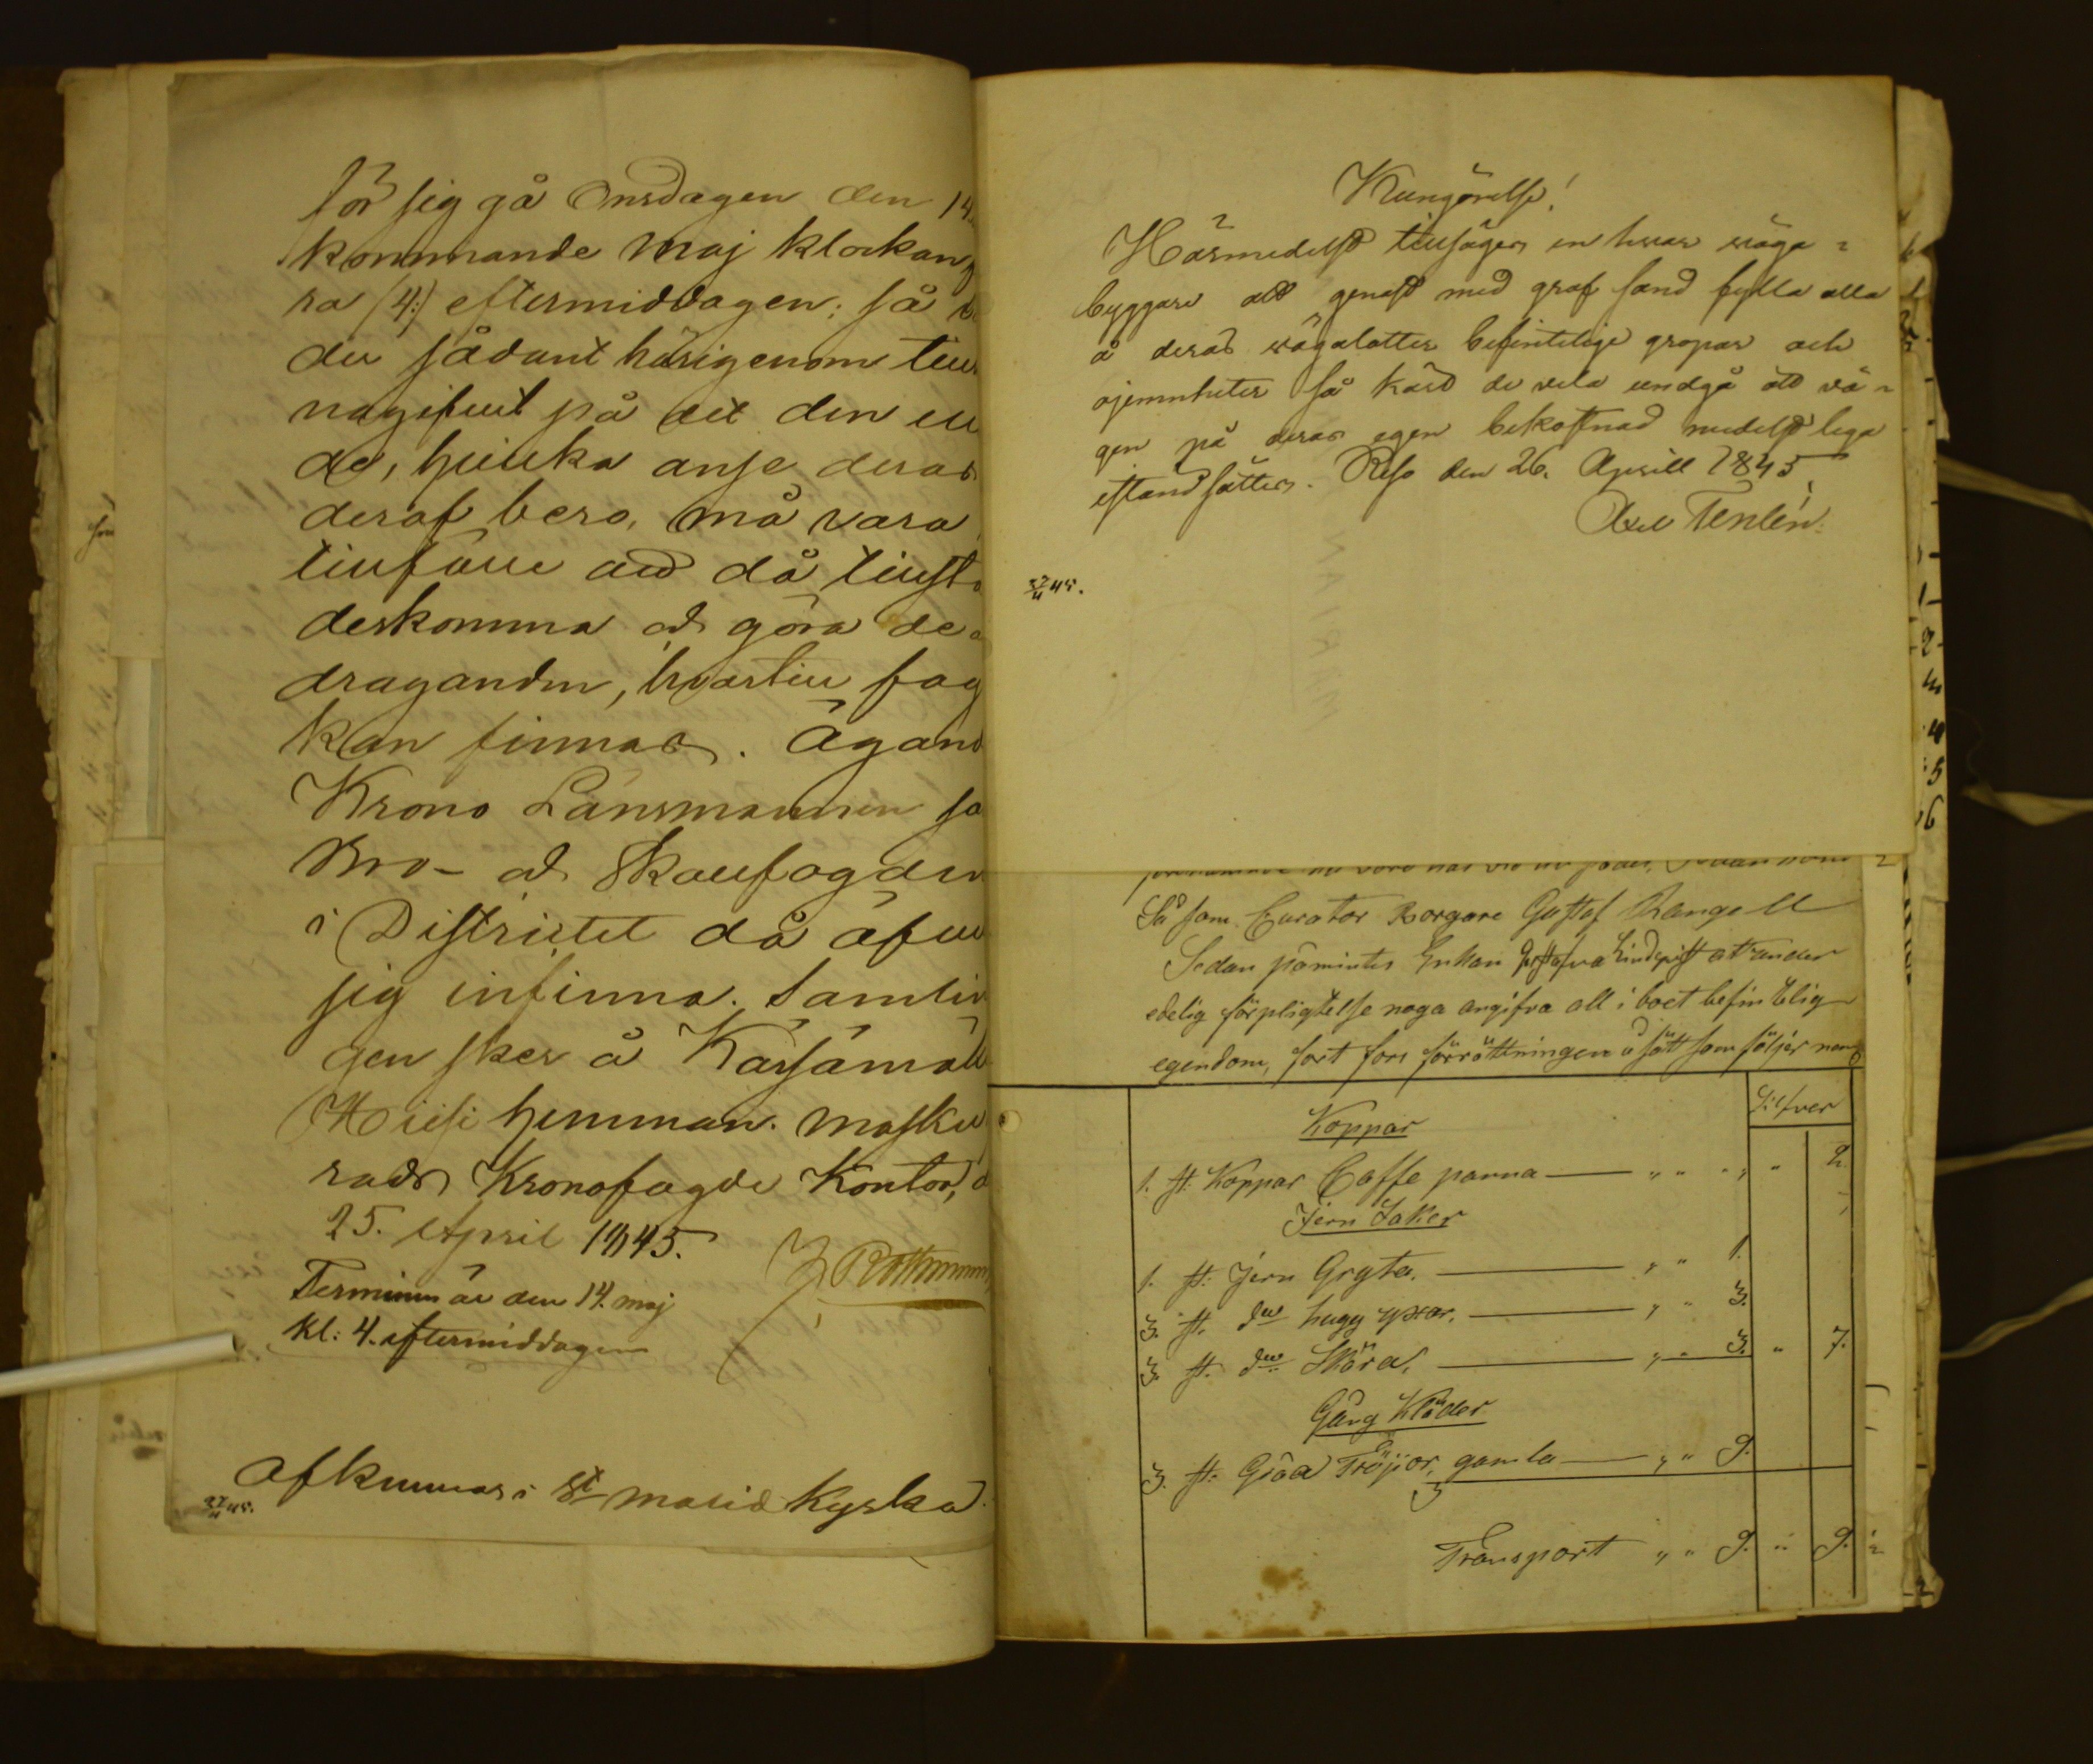 för sig gå Onsdagen den 14
kommande Maj klockan
ra (4:) eftermiddagen; så
du sådant härigenom till
nagifvit på det den
de, hvilka anse deras
deraf bero, må vara
tillfälle att då tillst
deskomma och göra de
draganden, hvartill fog
kan finnas. Ägand
Krono Länsmannen sa
Bro- och Skallfogden
i Districtet då äfven
sig infinna. Samlin
gen sker å Karsämäk
Hiisi hemman. Masku
rads Kronofogde Kontor,
25. April 1845.
Terminen är den 14. maj
Kl: 4. eftermiddagen
afkunnas i St Marie Kyrka.
27/4 45.
Kungörelse!
Härmedelst tillsäges en hvar väga-
byggare att genast med graf sand fylla alla
å deras vägalotter befintelige gropar och
ojemnheter så kärt de vela undgå att vä-
gen på deras egen bekostnad medelst lega
istandsättes. Reso den 26. Aprill 1845
Axel Tenlén.
27/4 45.
Så som Curator Borgare Gustaf Rangell
Sedan påmintes Enkan Gustafva Lindqvist att under
edelig förpligtelse noga angifva all i boet befintelig
egendom, fort fors förrättningen å sätt som följer nem
Silfver
Koppar
1. st. Koppar Caffe panna — „ „ „ „ 2.
Jern Saker
1. st. Jern Gryta. — „ „ 1.
3. st. do hugg yxor. — „ „ 3.
3. st. do Skäror. — „ „ 3. „ 7.
Gång Kläder
3. st. Gråa Tröjor, gamla — „ „ 9.
Transport „ „ 9. „ 9.